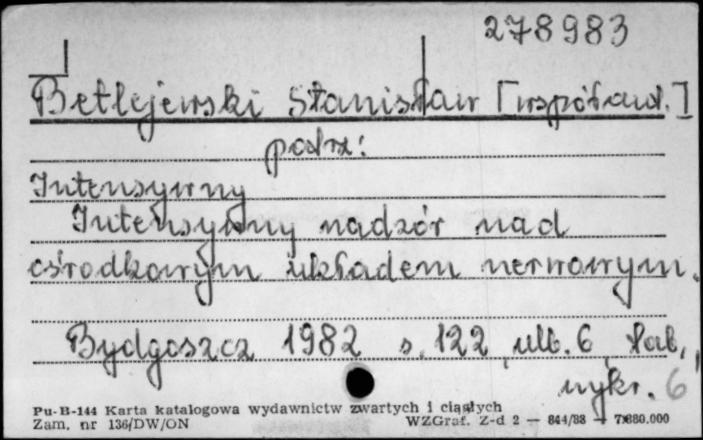 278983
Betlejewski Stanisław [współaut.]
patrz:
Intensywny
Intensywny nadzór nad
ośrodkowym układem nerwowym.
Bydgoszcz 1982 s. 122, ulb. 6, tab.,
wykr. 6
Pu-B-144 Karta katalogowa wydawnictw zwartych i ciągłych
Zam. nr 136/DW/ON WZGraf. Z-d 2 — 844/88 — 7.880.000